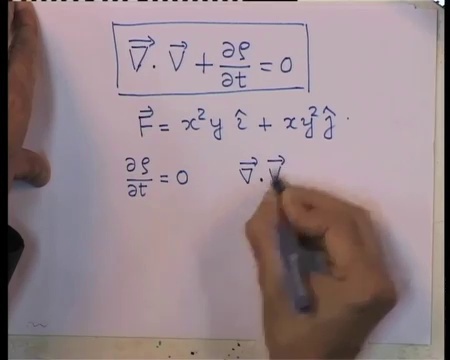 ∇⃗ . V⃗ + ∂ρ/∂t = 0
F⃗ = x²y î + xy² ĵ .
∂ρ/∂t = 0 ∇⃗ . V⃗